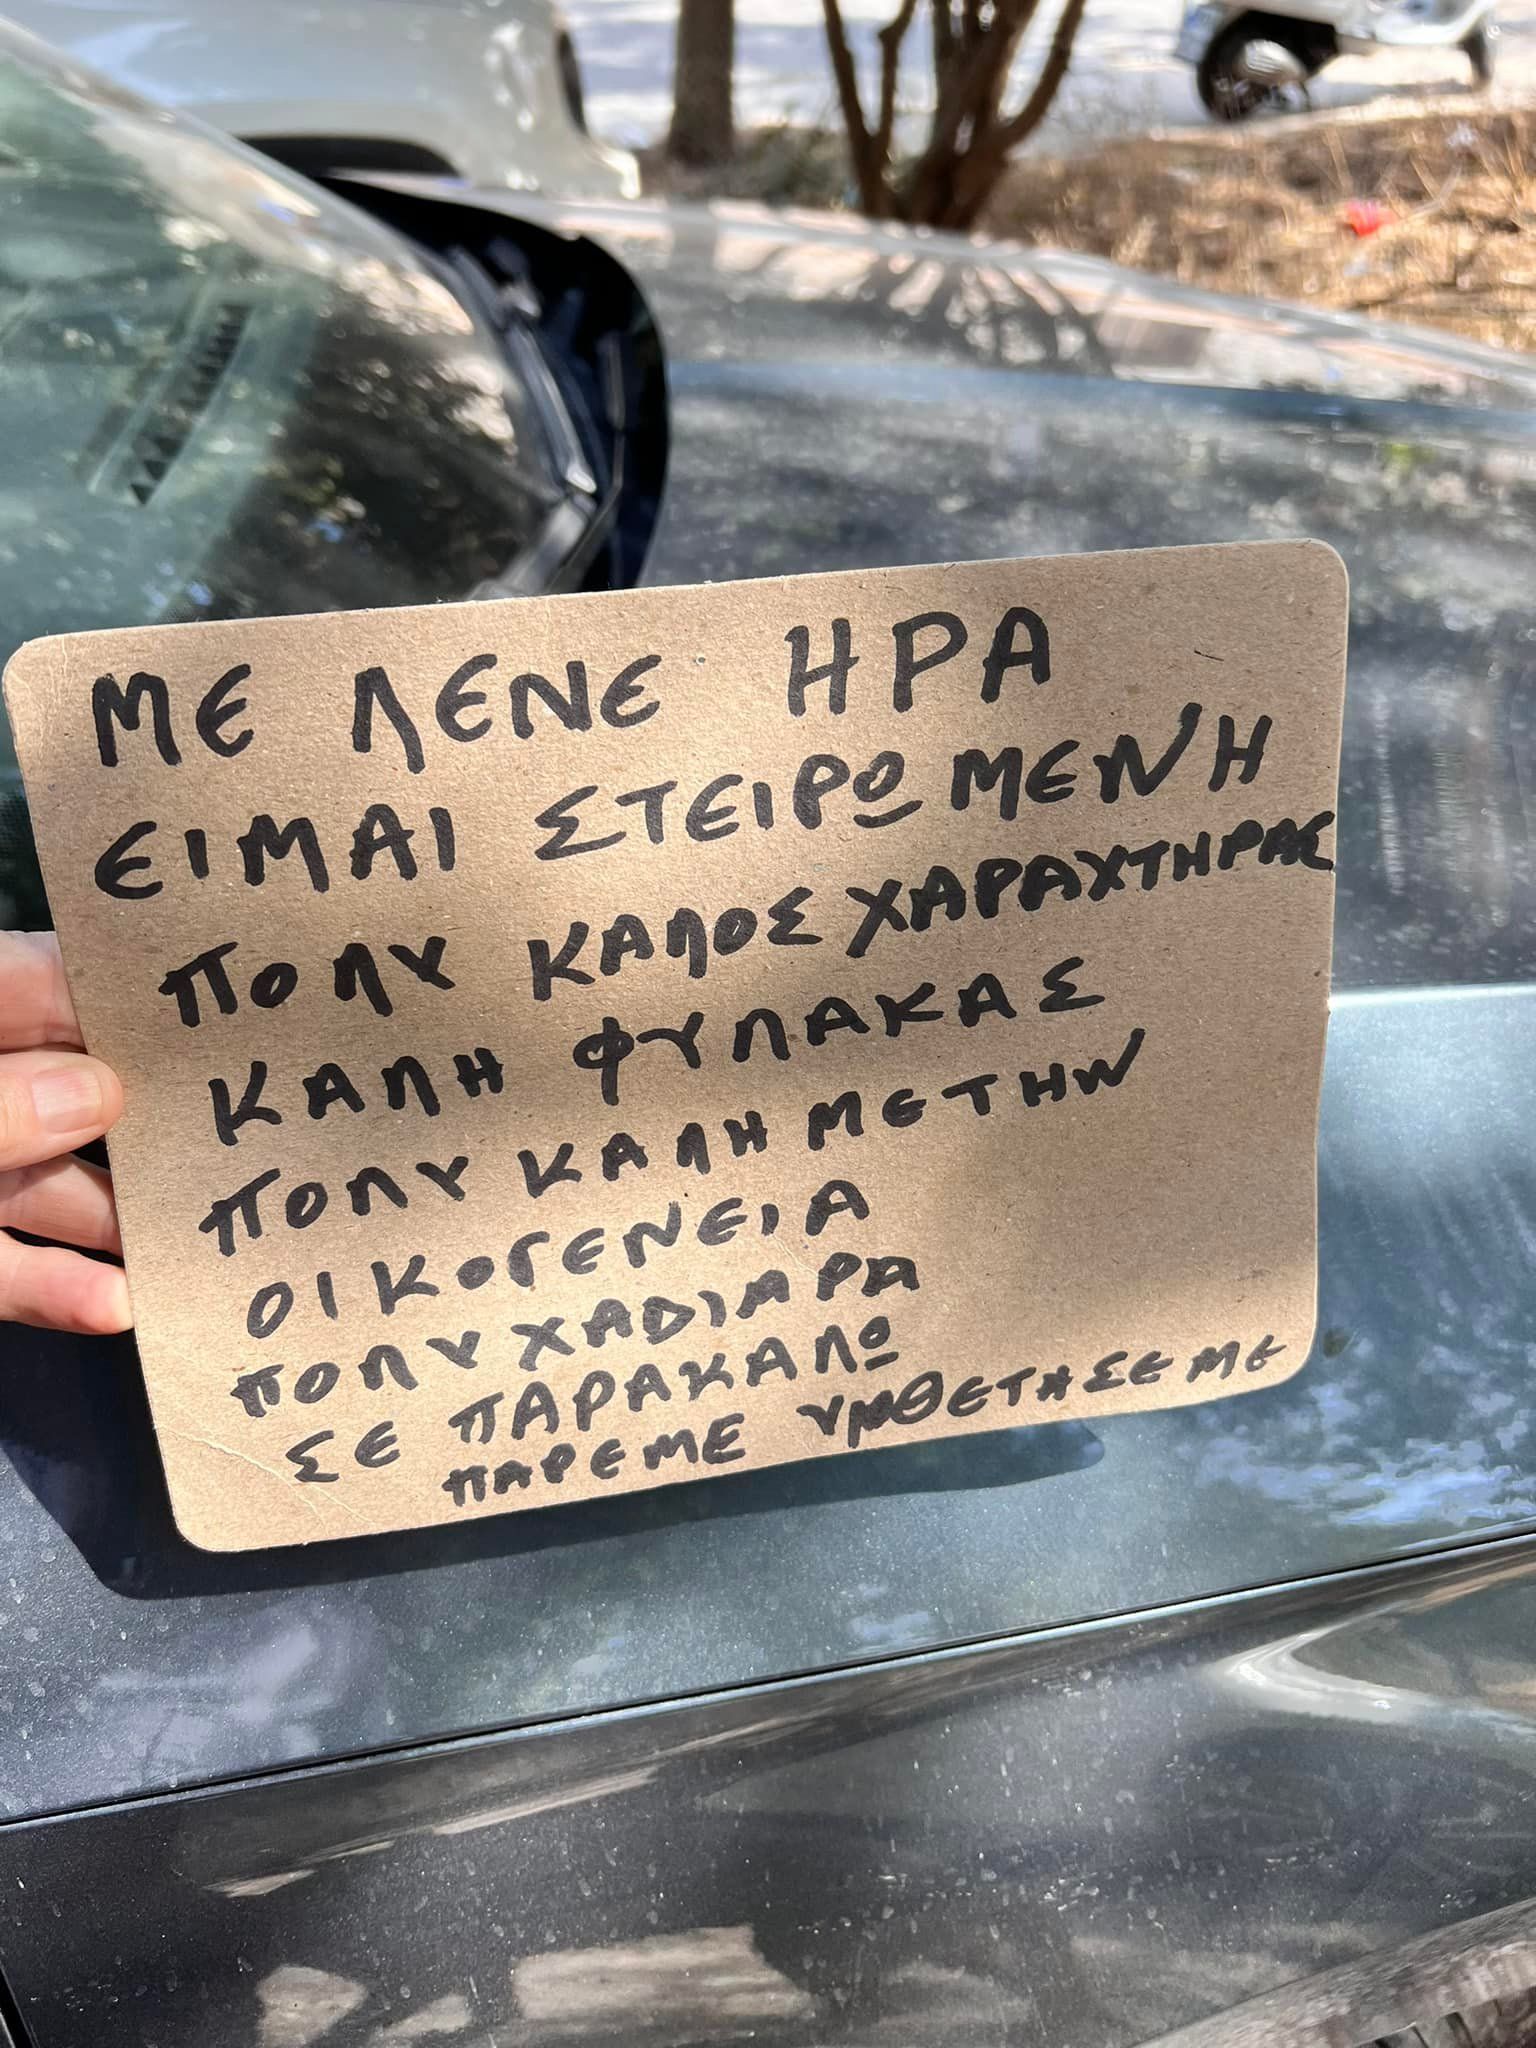 ΜΕ ΛΕΝΕ ΗΡΑ
ΕΙΜΑΙ ΣΤΕΙΡΩΜΕΝΗ
ΠΟΛΥ ΚΑΛΟΣ ΧΑΡΑΧΤΗΡΑΣ
ΚΑΛΗ ΦΥΛΑΚΑΣ
ΠΟΛΥ ΚΑΛΗ ΜΕ ΤΗΝ
ΟΙΚΟΓΕΝΕΙΑ
ΠΟΛΥ ΧΑΔΙΑΡΑ
ΣΕ ΠΑΡΑΚΑΛΩ
ΠΑΡΕ ΜΕ ΥΙΟΘΕΤΗΣΕ ΜΕ